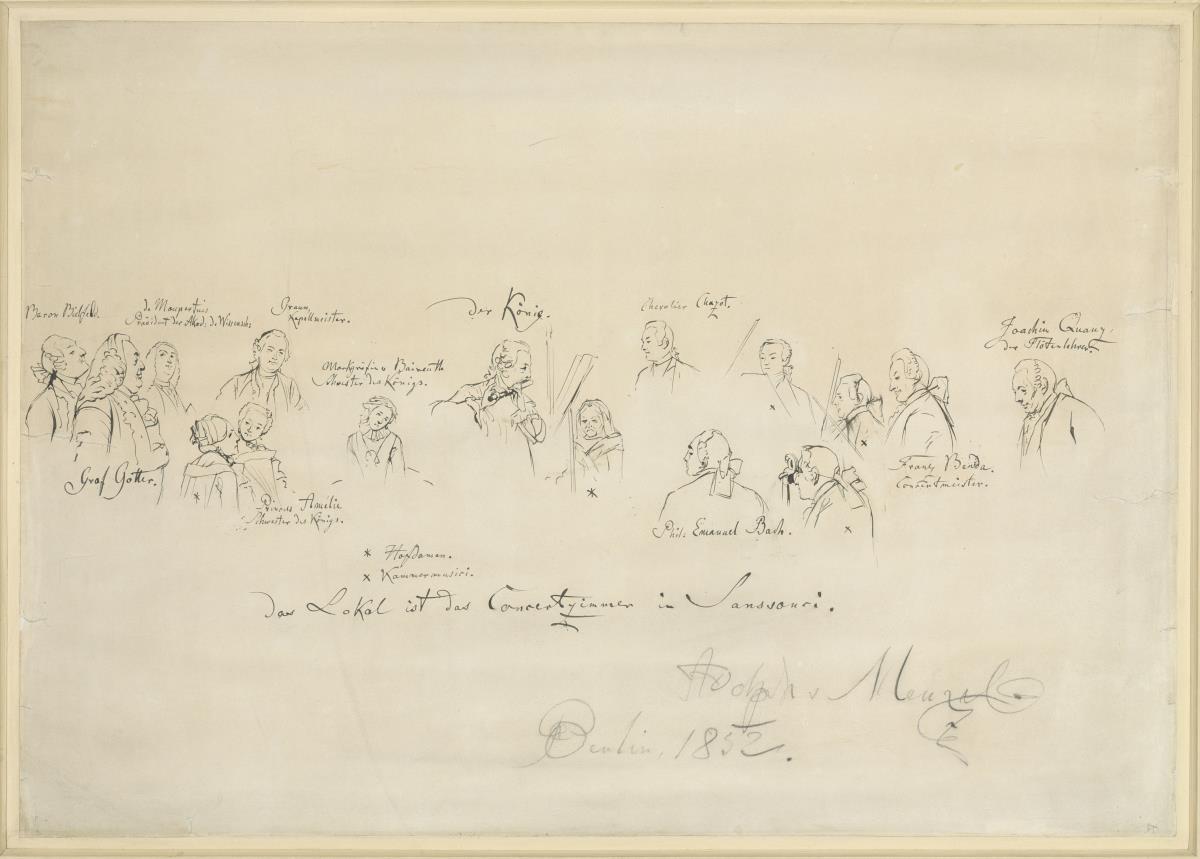 Baron Bielfeld.
de Maupertuis
Präsident der Akad. d. Wissensch.
Graun,
Kapellmeister.
Markgräfin v Baireuth
Schwester des Königs.
der König.
Chevalier Chazot.
Joachim Quanz,
der Flötenlehrer.
Graf Gotter.
Prinzess Amelie
Schwester des Königs.
Phil. Emanuel Bach.
Franz Benda.
Concertmeister.
* Hofdamen.
x Kammermusici.
Das Lokal ist das Concertzimmer in Sanssouci.
Adolph v Menzel
Berlin, 1852.